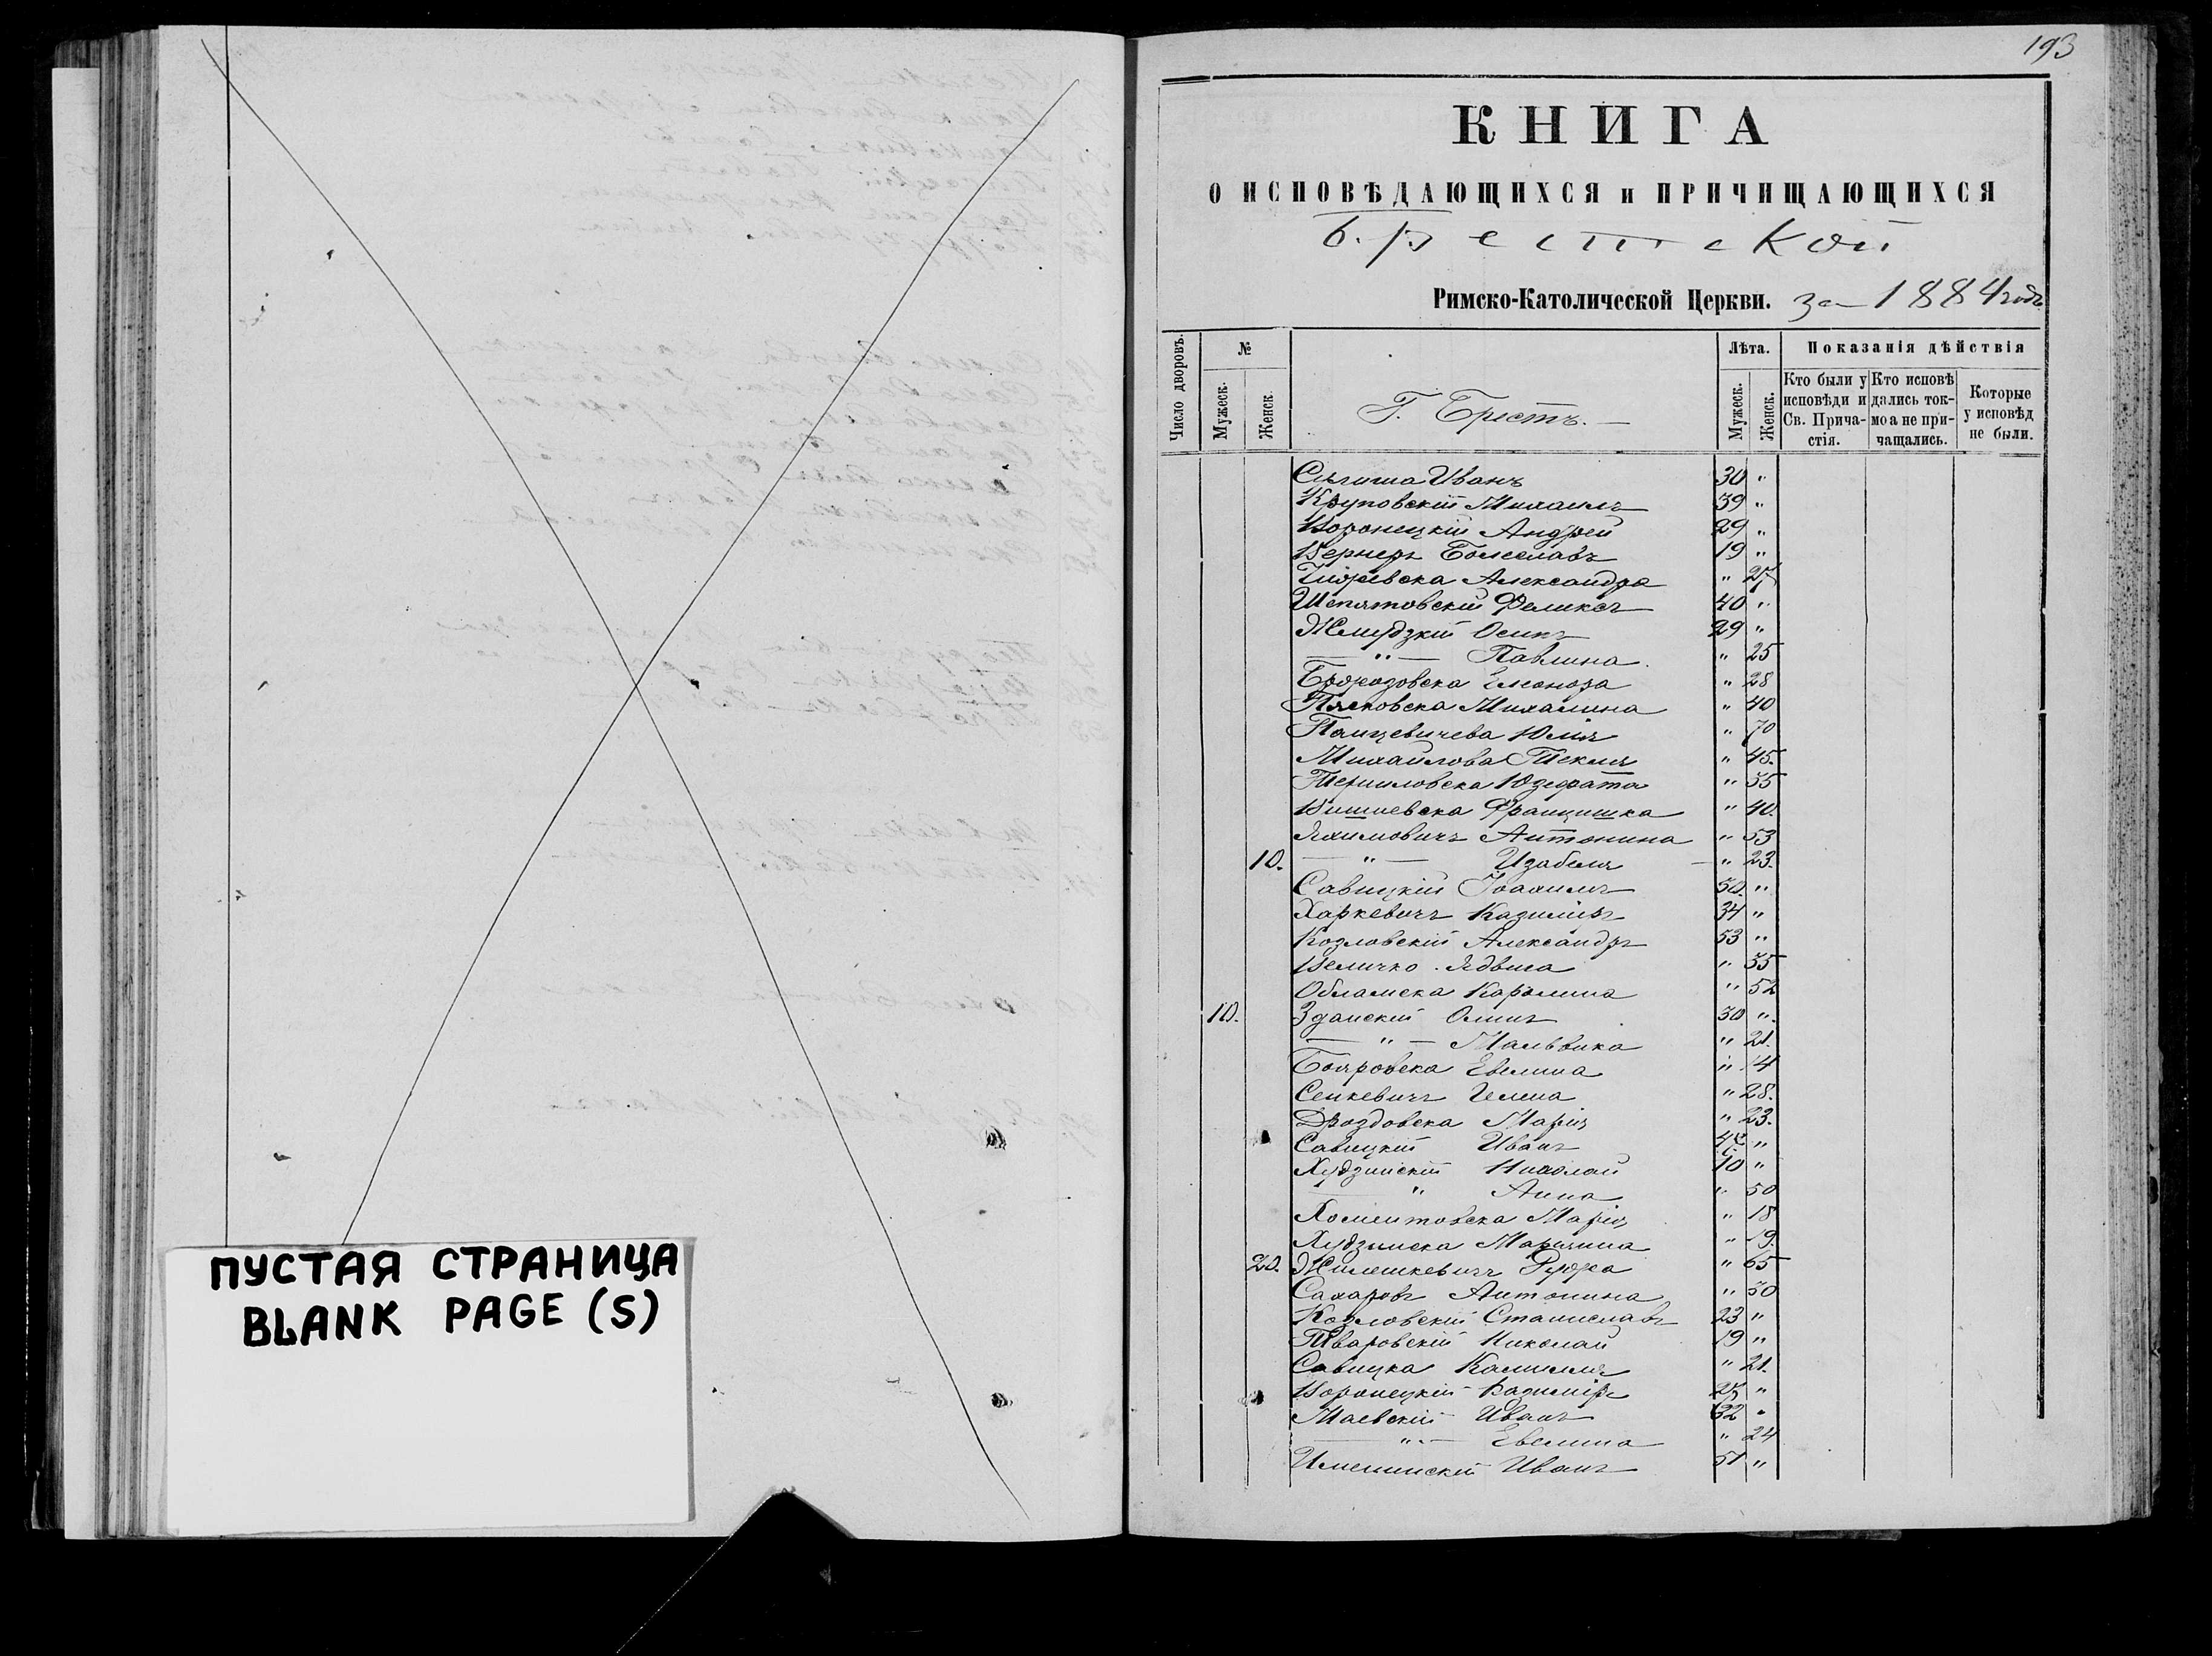 193
КНИГА
О ИСПОВѢДАЮЩИХСЯ и ПРИЧИЩАЮЩИХСЯ
брестской
Римско-Католической Церкви. за 1884 годъ
Число дворовъ. № Лѣта. Показанія дѣйствія
Мужеск. Женск. Г. Брестъ. Мужеск. Женск. Кто были у исповѣди и Св. Прича-стія. Кто исповѣ дались ток-мо а не при-чащались. Которые у исповѣд не были.
Иванъ 30 "
Круповскій Михаилъ 39 "
Воронецкій Андрей 29 "
Вернеръ Болеславъ 19 "
Александра " 27
Шепятовскій Феликсъ 40 "
Жмудзкій Осипъ 29 "
— " — Павлина " 25
Елеонора " 28
Пясковска Михалина " 40
Панцевичева Юлія " 70
Михайлова Текля " 45.
Юзефата " 55
Вишневска Францишка " 40.
Яхимовичъ Антонина " 53
10. — " — Изабеля " 23.
Савицкій Іоахимъ 50. "
Харкевичъ Казиміръ 34 "
Козловскій Александръ 53 "
Величко Ядвига " 35
Каролина " 52
10. Зданскій Осипъ 30 "
— " — Мальвина " 21.
Бояровска Евелина " 14
Сенкевичъ Гелена " 28.
Дроздовска Марія " 23.
Савицкій Иванъ "
Худзинскій Николай 10 "
" Анна " 50
Хоментовска Марія " 18
Худзинска Марянна " 19.
20. Жилешкевичъ " 65
Сахаровъ Антонина " 50
Козловскій Станиславъ 23 "
Тваровскій Николай 19 "
Савицка Камилля " 21.
Воронецкій Казиміръ 25 "
Маевскій Иванъ 32 "
— " — Евелина " 24
Именинскій Иванъ 51 "
ПУСТАЯ СТРАНИЦА
BLANK PAGE (S)